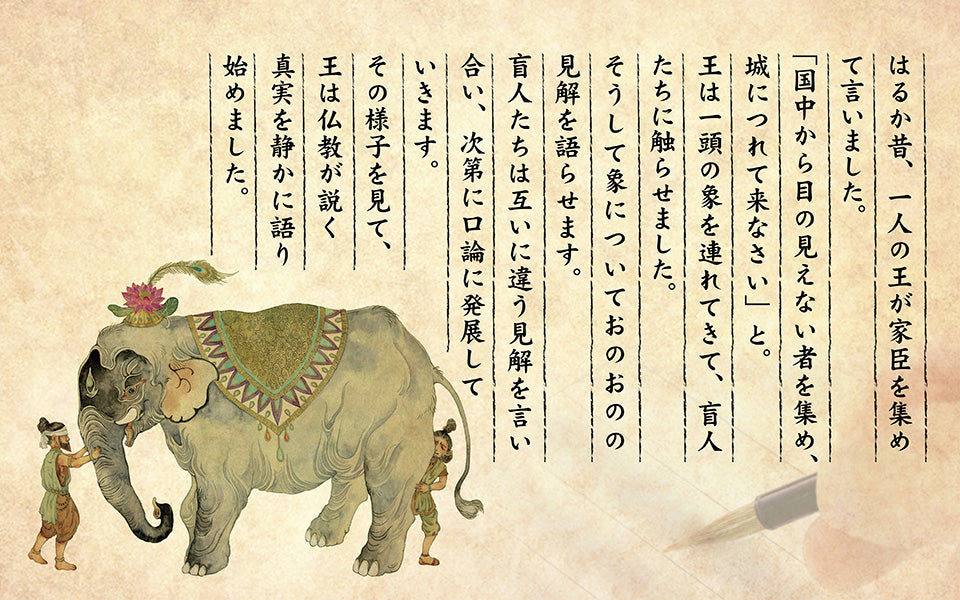 はるか昔、一人の王が家臣を集め
て言いました。
「国中から目の見えない者を集め、
城につれて来なさい」と。
王は一頭の象を連れてきて、盲人
たちに触らせました。
そうして象についておのおのの
見解を語らせます。
盲人たちは互いに違う見解を言い
合い、次第に口論に発展して
いきます。
その様子を見て、
王は仏教が説く
真実を静かに語り
始めました。